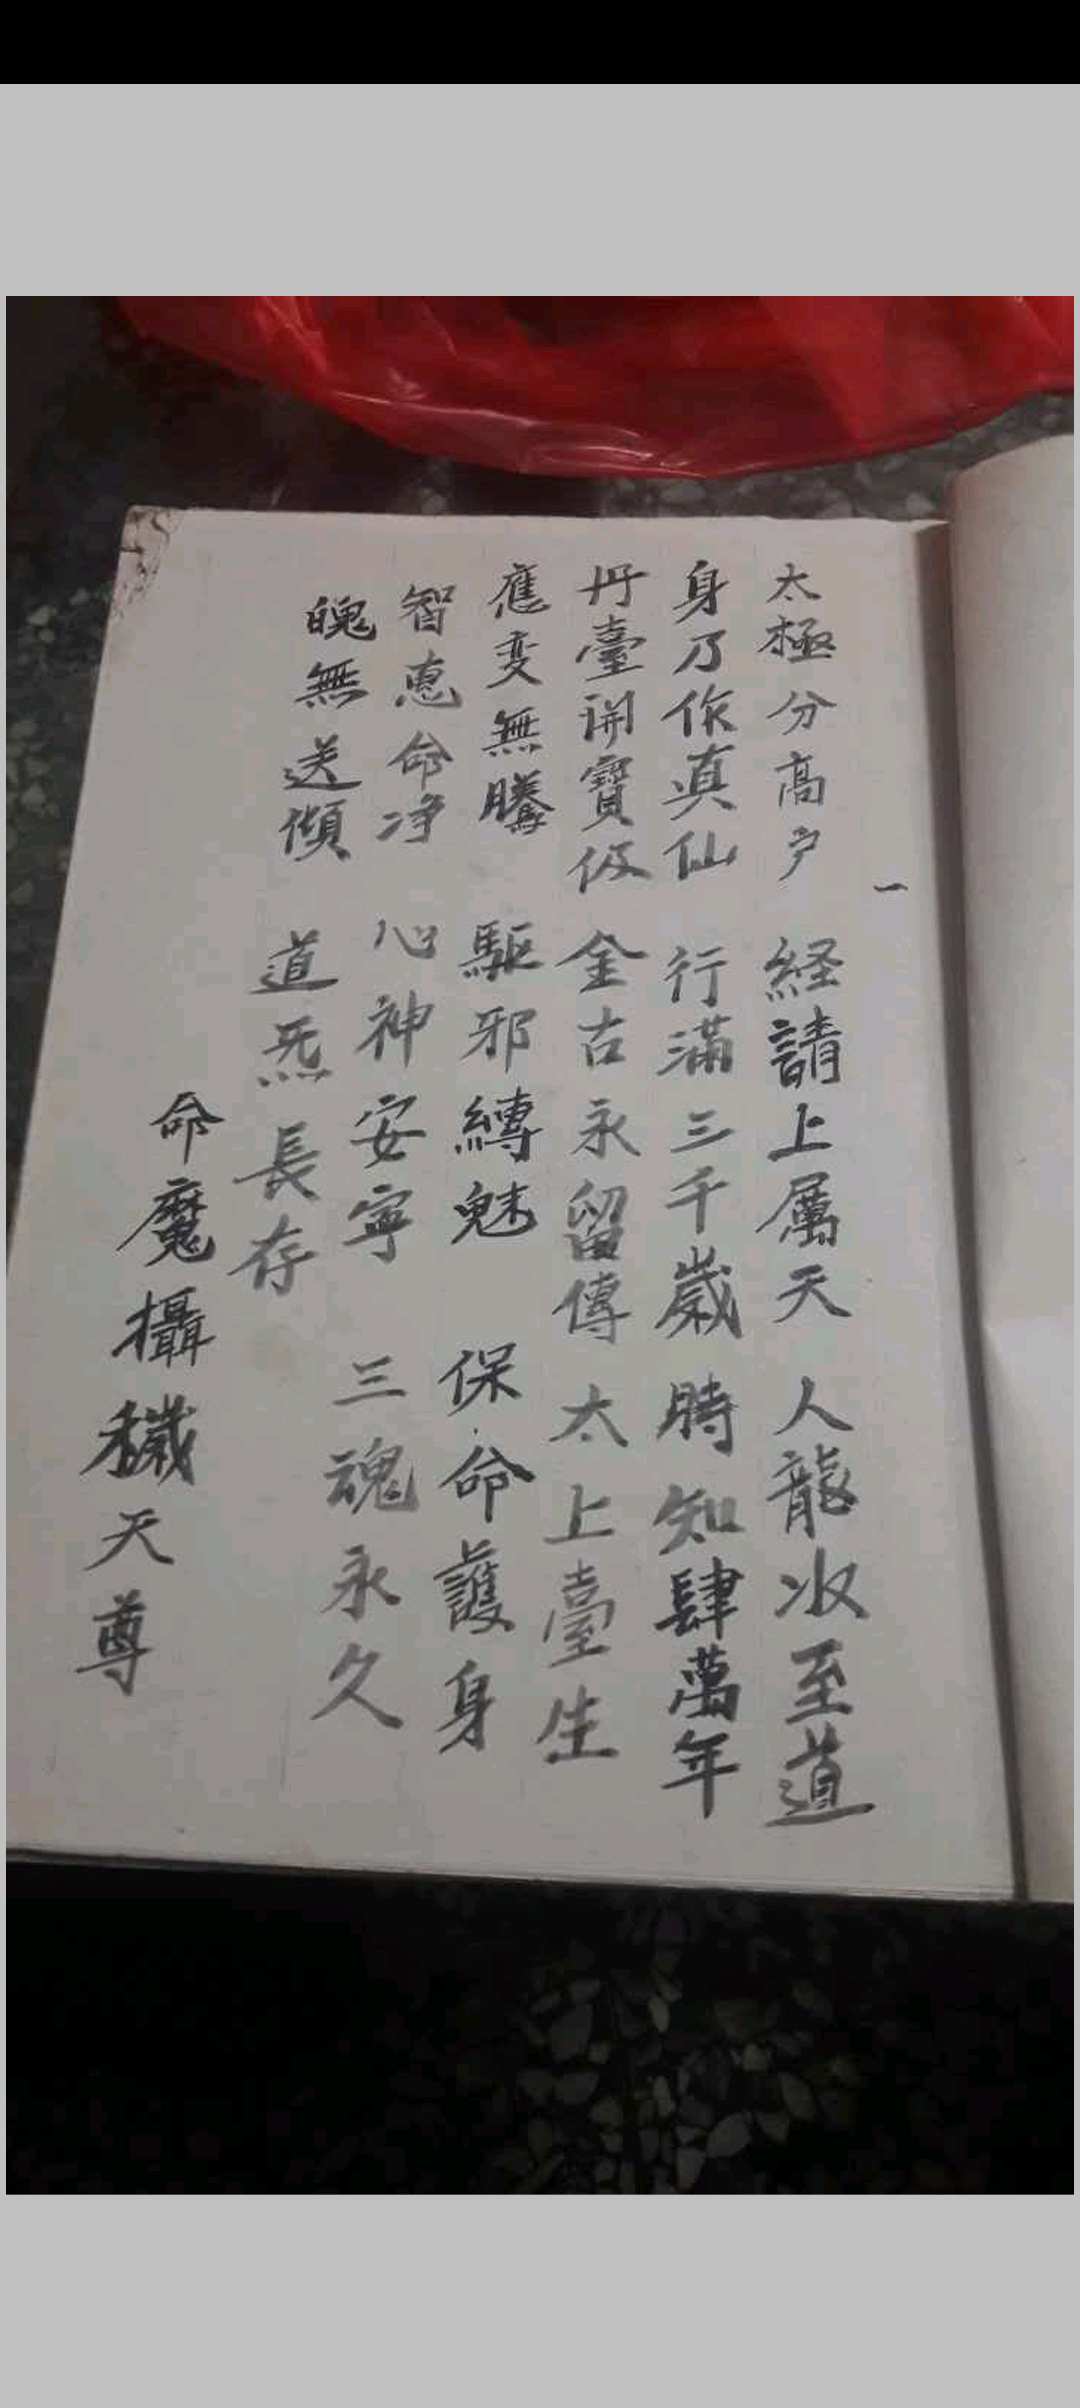 一
太極分高戶 経請上屬天 人龍冰至道
身乃作真仙 行滿三千歲 時知肆萬年
丹臺開寶伋 金古永留傳 太上臺生
應变無騰 驅邪縛魅 保命護身
智恵命净 心神安寧 三魂永久
魄無送傾 道炁長存
命魔攝穢天尊